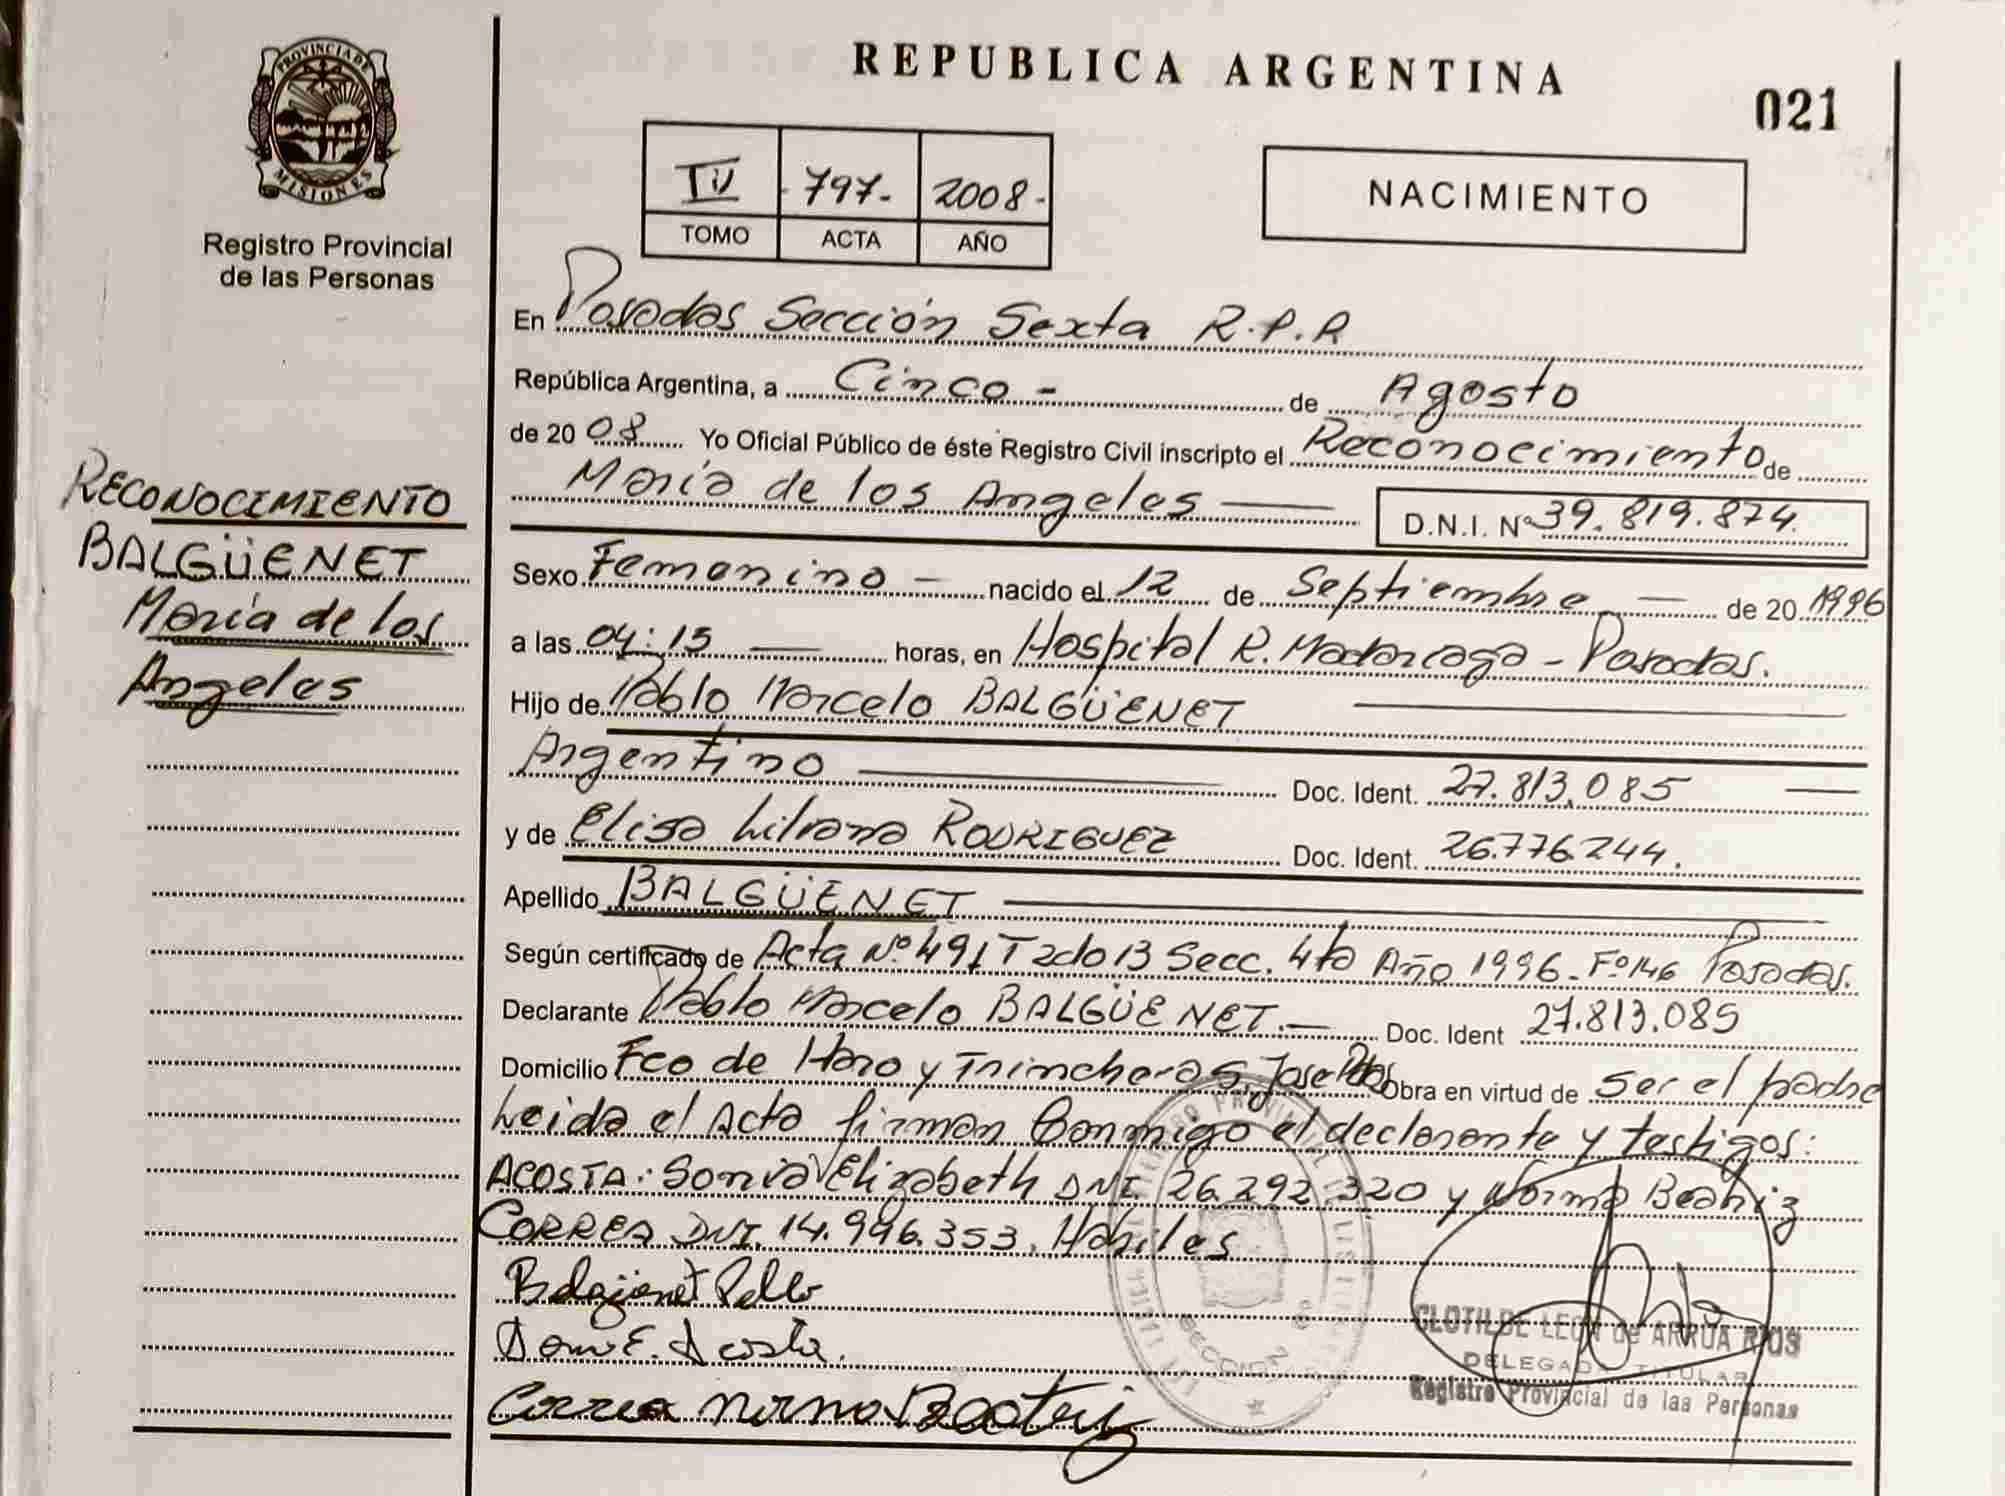 PROVINCIA DE
MISIONES
Registro Provincial
de las Personas
RECONOCIMIENTO
BALGÜENET
María de los
Angeles
REPUBLICA ARGENTINA
021
IV 797- 2008-
TOMO ACTA AÑO
NACIMIENTO
En Posadas Sección Sexta R.P.P
República Argentina, a Cinco - de Agosto
de 2008 Yo Oficial Público de éste Registro Civil inscripto el Reconocimiento de
María de los Angeles D.N.I. Nº 39.819.874.
Sexo Femenino - nacido el 12 de Septiembre - de 20 1996
a las 04:15 horas, en Hospital R. Madariaga - Posadas.
Hijo de Pablo Marcelo BALGÜENET
Argentino Doc. Ident. 27.813.085
y de Elisa Liliana RODRIGUEZ Doc. Ident. 26.776.244.
Apellido BALGÜENET
Según certificado de Acta Nº 491 T 2do 13 Secc. 4ta Año 1996. Fº 146 Posadas.
Declarante Pablo Marcelo BALGÜENET.- Doc. Ident 27.813.085
Domicilio Fco de Haro y Trincheras Jose Pdas Obra en virtud de ser el padre
Leida el Acta firman Conmigo el declarante y testigos:
ACOSTA: Sonia Elizabeth DNI. 26.292.320 y Norma Beatriz
CORREA DNI. 14.946.353. Hábiles
Balgüenet Pablo
E. Acosta.
Correa Norma Beatriz
SECCION
CLOTILDE LEON de ARRUA RIOS
DELEGADA TITULAR
Registro Provincial de las Personas